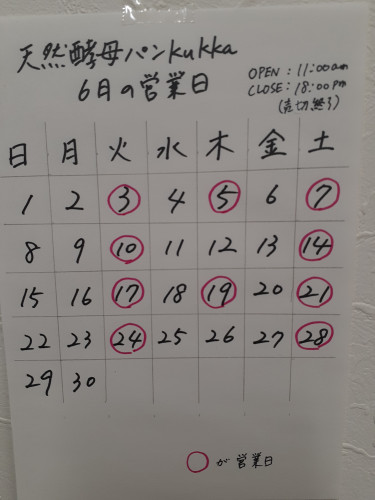 天然酵母パンkukka
6月の営業日
OPEN : 11:00am
CLOSE : 18:00pm
(売切終了)
日 月 火 水 木 金 土
1 2 3 4 5 6 7
8 9 10 11 12 13 14
15 16 17 18 19 20 21
22 23 24 25 26 27 28
29 30
○が営業日